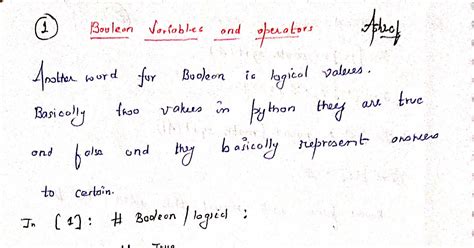 ① Boolean Variables and operators
Another word for Boolean is logical values.
Basically two values in python they are true
and false and they basically represent answers
to certain.
In [1]: # Boolean / logical :
True